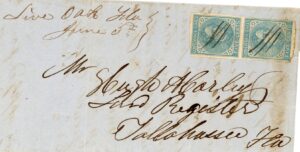 Live Oak Fla
June 5th
Mr Hugh
Land Register
Tallahassee Fla